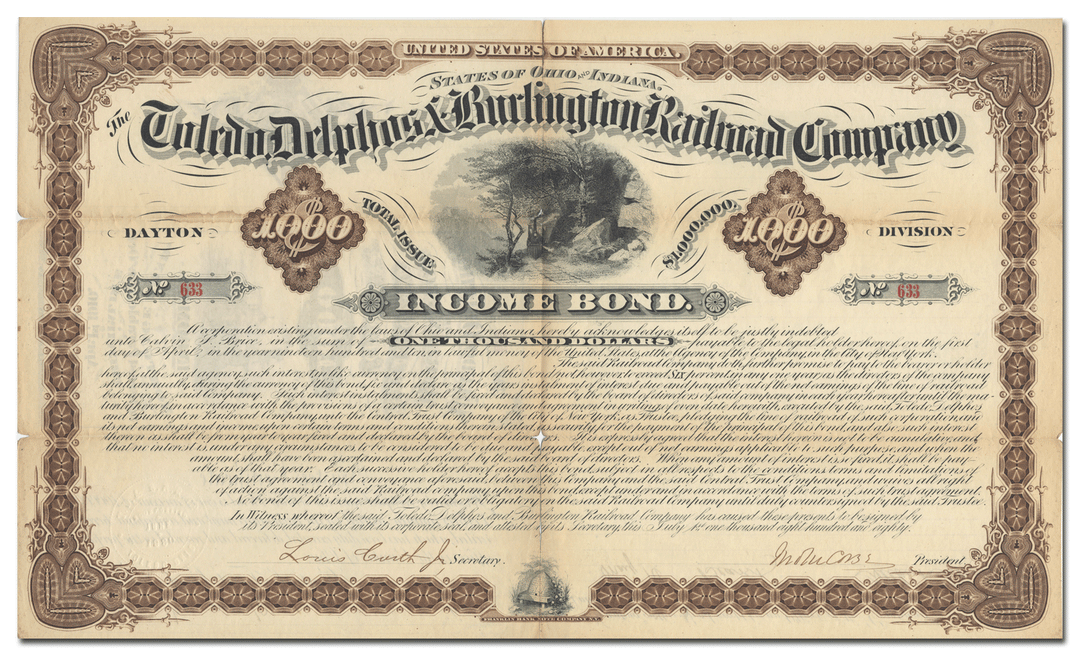 UNITED STATES OF AMERICA.
STATES OF OHIO AND INDIANA.
The Toledo, Delphos & Burlington Railroad Company
$1000
TOTAL ISSUE
$1,000,000.
$1000
DAYTON
DIVISION
No 633
No 633
INCOME BOND.
A corporation existing under the laws of Ohio and Indiana, hereby acknowledges itself to be justly indebted
unto Calvin S. Brice, in the sum of ONE THOUSAND DOLLARS payable to the legal holder hereof, on the first
day of April, in the year nineteen hundred and ten, in lawful money of the United States, at the Agency of the Company, in the City of New York.
The said Railroad Company doth further promise to pay to the bearer or holder
hereof, at the said agency, such interest in like currency, on the principal of this bond, not however to exceed six per cent in any one year, as the directors of the company
shall annually, during the currency of this bond, fix and declare as the years instalment of interest due and payable out of the net earnings of the line of railroad
belonging to said Company. Such interest instalments shall be fixed and declared by the board of directors of said company in each year hereafter until the ma-
turity hereof, in accordance with the provisions of a certain conveyance and agreement in writing of even date herewith, executed by the said Toledo, Delphos
and Burlington Railroad Company, unto the Central Trust Company of the City of New York, as Trustee, pledging the line of railroad, such corporation, its
net earnings and income upon certain terms and conditions therein stated as security for the payment of the principal of this bond, and also such interest
thereon as shall be from year to year fixed and declared by the board of directors. It is expressly agreed that the interest hereon is not to be cumulative, and
that no interest is under any circumstances to be considered to be due and payable, except out of net earnings applicable to such purpose, and when the
amount shall have been ascertained and declared by the said board of directors. When any amount of interest is so declared it shall be pay-
able as of that year. Each successive holder hereof accepts this bond, subject in all respects to the conditions, terms and limitations of
the trust agreement and conveyance aforesaid, delivered by this Company to the said Central Trust Company, and waives all right
of action against the said Railroad company upon this bond, except under and in accordance with the terms of such trust agreement.
No bond of this issue shall be valid or binding upon the said Railroad Company until duly countersigned by the said Trustee.
In Witness whereof the said Toledo, Delphos and Burlington Railroad Company has caused these presents to be signed by
its President, sealed with its corporate seal, and attested by its Secretary, this July 1st one thousand eight hundred and eighty.
Louis Curth Jr Secretary.
President
FRANKLIN BANK NOTE COMPANY N.Y.